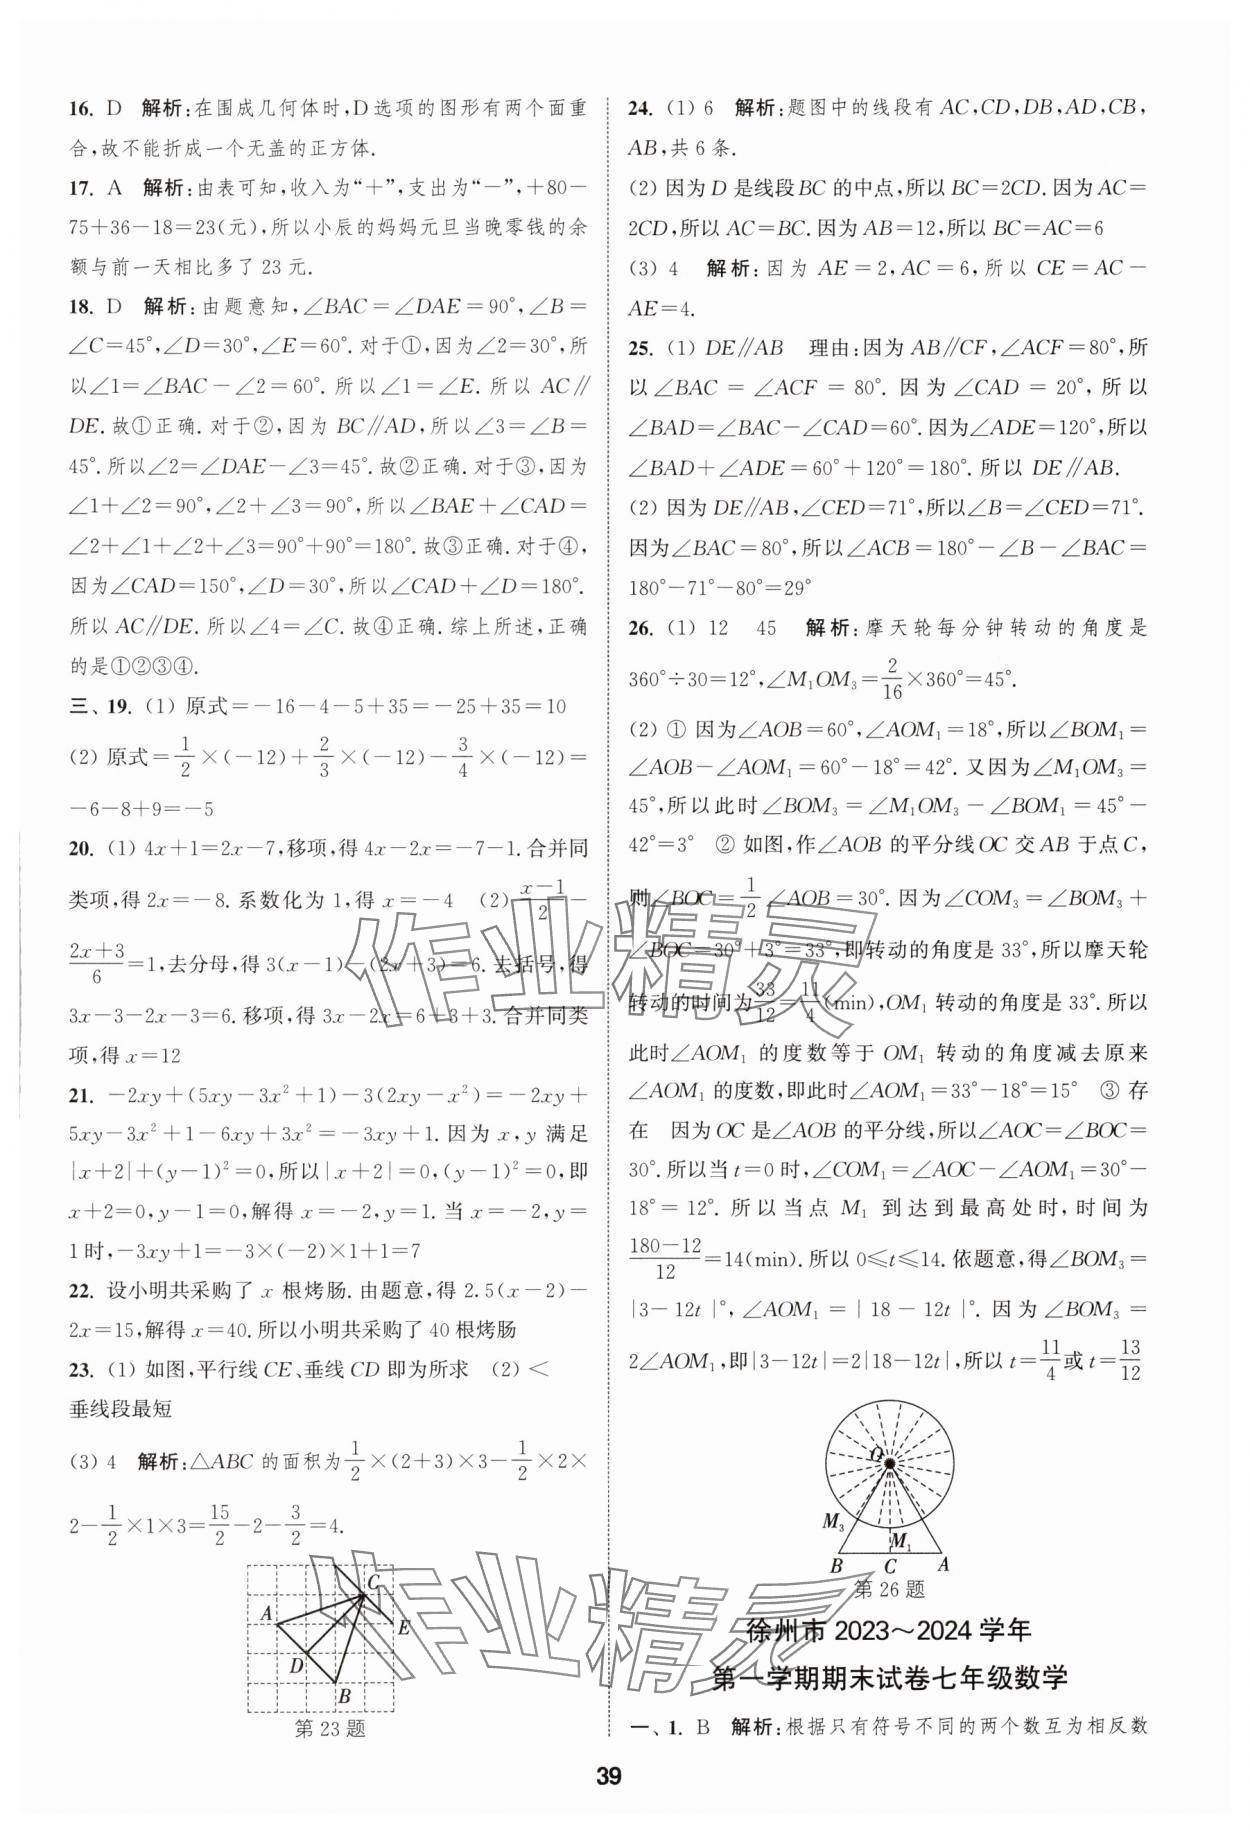 16. D 解析:在围成几何体时,D选项的图形有两个面重
合,故不能折成一个无盖的正方体.
17. A 解析:由表可知,收入为“+”,支出为“-”,+80-
75+36-18=23(元),所以小辰的妈妈元旦当晚零钱的余
额与前一天相比多了 23 元.
18. D 解析:由题意知,∠BAC=∠DAE=90°,∠B=
∠C=45°,∠D=30°,∠E=60°.对于①,因为∠2=30°,所
以∠1=∠BAC-∠2=60°.所以∠1=∠E.所以 AC∥
DE.故①正确.对于②,因为 BC∥AD,所以∠3=∠B=
45°.所以∠2=∠DAE-∠3=45°.故②正确.对于③,因为
∠1+∠2=90°,∠2+∠3=90°,所以∠BAE+∠CAD=
∠2+∠1+∠2+∠3=90°+90°=180°.故③正确.对于④,
因为∠CAD=150°,∠D=30°,所以∠CAD+∠D=180°.
所以 AC∥DE.所以∠4=∠C.故④正确.综上所述,正确
的是①②③④.
三、19. (1) 原式=-16-4-5+35=-25+35=10
(2) 原式=1/2×(-12)+2/3×(-12)-3/4×(-12)=
-6-8+9=-5
20. (1) 4x+1=2x-7,移项,得 4x-2x=-7-1.合并同
类项,得 2x=-8.系数化为 1,得 x=-4 (2) (x-1)/2-
(2x+3)/6=1,去分母,得 3(x-1)-(2x+3)=6.去括号,得
3x-3-2x-3=6.移项,得 3x-2x=6+3+3.合并同类
项,得 x=12
21. -2xy+(5xy-3x²+1)-3(2xy-x²)=-2xy+
5xy-3x²+1-6xy+3x²=-3xy+1.因为 x,y 满足
|x+2|+(y-1)²=0,所以|x+2|=0,(y-1)²=0,即
x+2=0,y-1=0,解得 x=-2,y=1.当 x=-2,y=
1时,-3xy+1=-3×(-2)×1+1=7
22. 设小明共采购了 x 根烤肠.由题意,得 2.5(x-2)-
2x=15,解得 x=40.所以小明共采购了 40 根烤肠
23. (1) 如图,平行线 CE、垂线 CD 即为所求 (2) <
垂线段最短
(3) 4 解析:△ABC 的面积为1/2×(2+3)×3-1/2×2×
2-1/2×1×3=15/2-2-3/2=4.
C
A
E
D
B
第 23 题
24. (1) 6 解析:题图中的线段有 AC,CD,DB,AD,CB,
AB,共 6 条.
(2) 因为 D 是线段 BC 的中点,所以 BC=2CD.因为 AC=
2CD,所以 AC=BC.因为 AB=12,所以 BC=AC=6
(3) 4 解析:因为 AE=2,AC=6,所以 CE=AC-
AE=4.
25. (1) DE∥AB 理由:因为 AB∥CF,∠ACF=80°,所
以∠BAC=∠ACF=80°.因为∠CAD=20°,所以
∠BAD=∠BAC-∠CAD=60°.因为∠ADE=120°,所以
∠BAD+∠ADE=60°+120°=180°.所以 DE∥AB.
(2) 因为 DE∥AB,∠CED=71°,所以∠B=∠CED=71°.
因为∠BAC=80°,所以∠ACB=180°-∠B-∠BAC=
180°-71°-80°=29°
26. (1) 12 45 解析:摩天轮每分钟转动的角度是
360°÷30=12°,∠M₁OM₃=2/16×360°=45°.
(2) ① 因为∠AOB=60°,∠AOM₁=18°,所以∠BOM₁=
∠AOB-∠AOM₁=60°-18°=42°.又因为∠M₁OM₃=
45°,所以此时∠BOM₃=∠M₁OM₃-∠BOM₁=45°-
42°=3° ② 如图,作∠AOB 的平分线OC 交 AB 于点 C,
则∠BOC=1/2∠AOB=30°.因为∠COM₃=∠BOM₃+
∠BOC=30°+3°=33°,即转动的角度是 33°,所以摩天轮
转动的时间为33/12=11/4(min),OM₁ 转动的角度是 33°.所以
此时∠AOM₁ 的度数等于 OM₁ 转动的角度减去原来
∠AOM₁ 的度数,即此时∠AOM₁=33°-18°=15° ③ 存
在 因为 OC 是∠AOB 的平分线,所以∠AOC=∠BOC=
30°.所以当 t=0 时,∠COM₁=∠AOC-∠AOM₁=30°-
18°=12°.所以当点 M₁ 到达到最高处时,时间为
(180-12)/12=14(min).所以 0≤t≤14.依题意,得∠BOM₃=
|3-12t|°,∠AOM₁=|18-12t|°.因为∠BOM₃=
2∠AOM₁,即|3-12t|=2|18-12t|,所以 t=11/4或 t=13/12
O
M₃
M₁
B C A
第 26 题
徐州市 2023~2024 学年
第一学期期末试卷七年级数学
一、1. B 解析:根据只有符号不同的两个数互为相反数
39
作业精灵
作业精灵